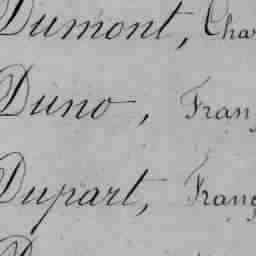 Dumont, Char
Duno, Franç
Dupart, Franç